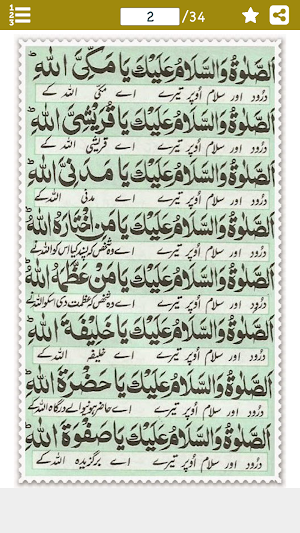 2 /34
اَلصَّلٰوةُ وَالسَّلَامُ عَلَيْكَ يَا مَكِّىَّ اللهِ
درود اور سلام اوپر تیرے اے مکی اللہ کے
اَلصَّلٰوةُ وَالسَّلَامُ عَلَيْكَ يَا قُرَيْشِىَّ اللهِ
درود اور سلام اوپر تیرے اے قریشی اللہ کے
اَلصَّلٰوةُ وَالسَّلَامُ عَلَيْكَ يَا مَدَنِىَّ اللهِ
درود اور سلام اوپر تیرے اے مدنی اللہ کے
اَلصَّلٰوةُ وَالسَّلَامُ عَلَيْكَ يَا مَنِ اخْتَارَهُ اللهُ
درود اور سلام اوپر تیرے اے وہ شخص کہ پسند کیا اس کو اللہ نے
اَلصَّلٰوةُ وَالسَّلَامُ عَلَيْكَ يَا مَنْ عَظَّمَهُ اللهُ
درود اور سلام اوپر تیرے اے وہ شخص کہ عظمت دی اسکو اللہ نے
اَلصَّلٰوةُ وَالسَّلَامُ عَلَيْكَ يَا خَلِيْفَةَ اللهِ
درود اور سلام اوپر تیرے اے خلیفہ اللہ کے
اَلصَّلٰوةُ وَالسَّلَامُ عَلَيْكَ يَا حَضْرَةَ اللهِ
درود اور سلام اوپر تیرے اے حاضر ہونیوالے درگاہ اللہ کے
اَلصَّلٰوةُ وَالسَّلَامُ عَلَيْكَ يَا صَفْوَةَ اللهِ
درود اور سلام اوپر تیرے اے برگزیدہ اللہ کے